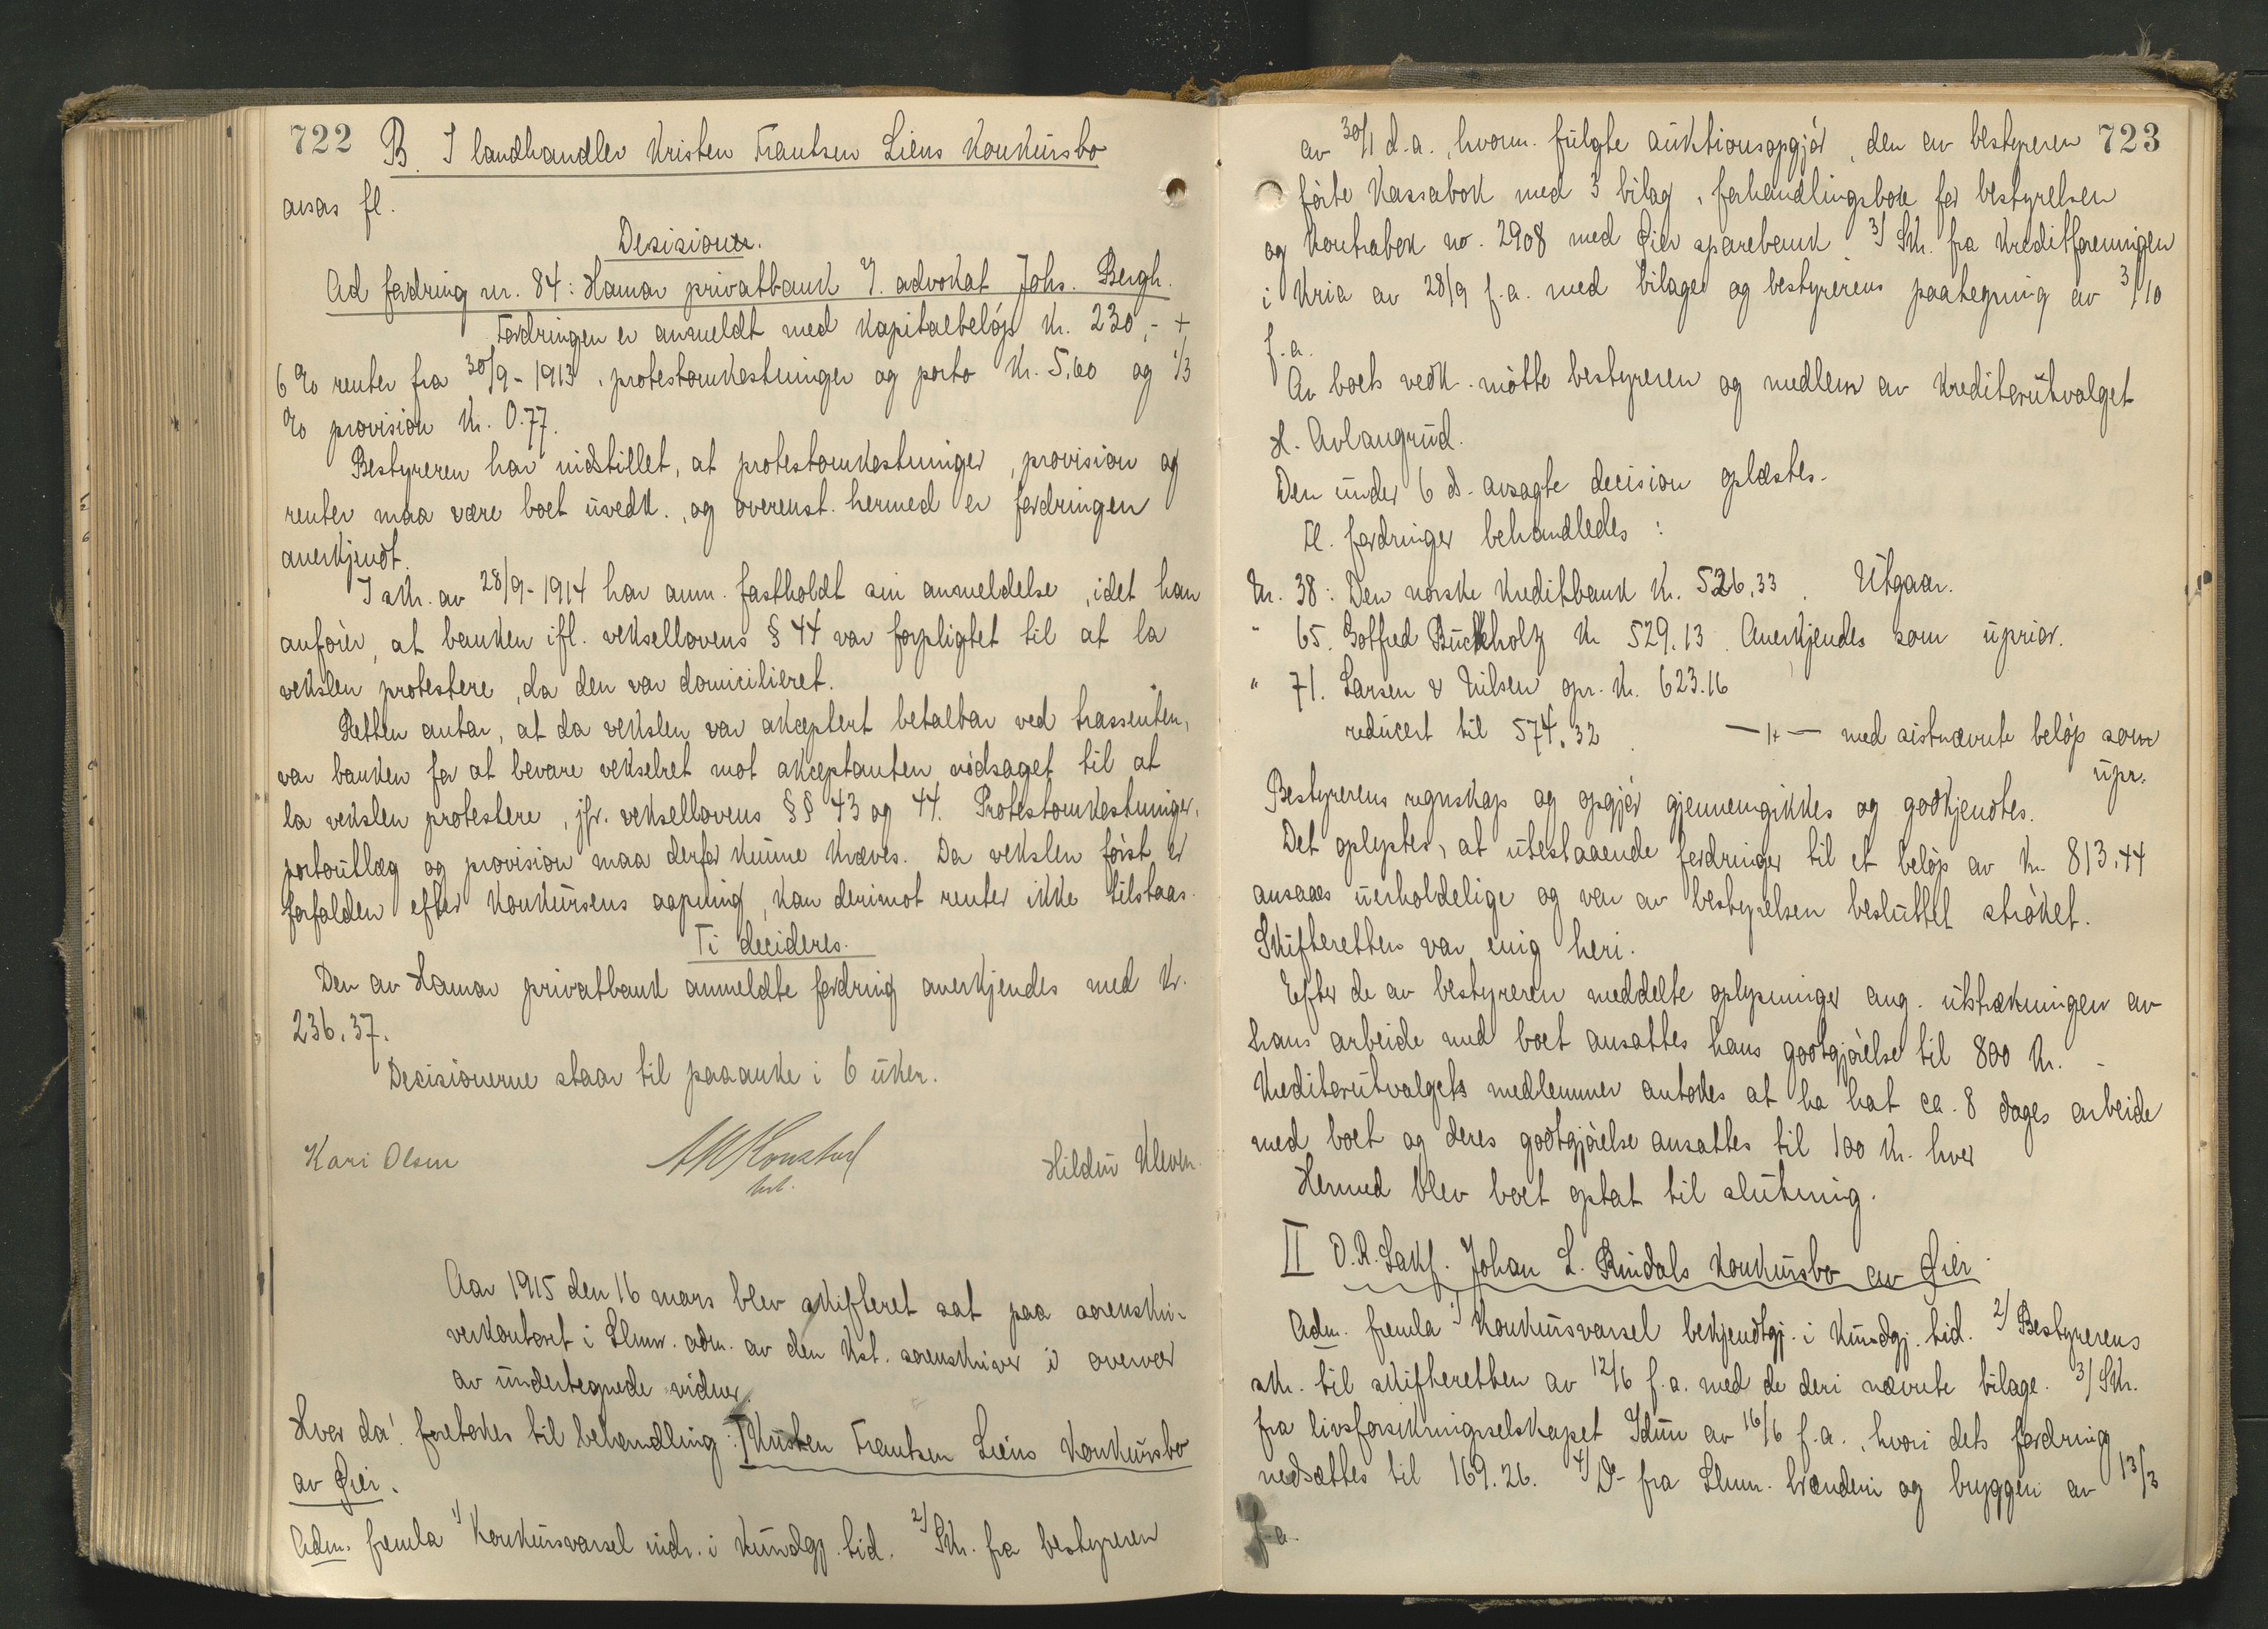 722 B. I landhandler Kristen Frantsen Liens Konkursbo
avsas fl.
Desisioner.
Ad fordring nr. 84: Hamar privatbank v. advokat Johs. Bergh.
Fordringen er anmeldt med Kapitalbeløp Kr. 230,- +
6 % renter fra 30/9-1913, protestomkostninger og porto Kr. 5.60 og 1/3
% provision Kr. 0.77.
Bestyreren har indstillet, at protestomkostninger, provision og
renter maa være boet uvedk., og overenst. hermed er fordringen
anerkjendt.
I skr. av 28/9-1914 har anm. fastholdt sin anmeldelse, idet han
anfører, at banken ifl. veksellovens § 44 var forpligtet til at la
vekslen protestere, da den var domicilieret.
Retten antar, at da vekslen var akceptert betalbar ved trassenten,
var banken for at bevare vekselret mot akceptanten nødsaget til at
la vekslen protestere, jfr. veksellovens §§ 43 og 44. Protestomkostninger,
portoutlæg og provision maa derfor kunne kræves. Da vekslen først er
forfalden efter Konkursens aapning, kan derimot renter ikke tilstaas.
Ti decideres.
Den av Hamar privatbank anmeldte fordring anerkjendes med Kr.
236.37.
Desisionerne staar til paaanke i 6 uker.
Kari Olsen Hildur Kleven.
kst.
Aar 1915 den 16 mars blev skifteret sat paa sorenskri-
verkontoret i Llmr. adm. av den kst. sorenskriver i overvær
av undertegnede vidner.
Hvor da: foretokes til behandling: I Kristen Frantsen Liens Konkursbo
av Øier.
Adm. fremla 1/ Konkursvarsel indr. i Kundgj. tid. 2/ Skr. fra bestyreren
av 30/1 d.a., hvorm. fulgte auktionsopgjør, den av bestyreren 723
førte Kassabok med 3 bilag, forhandlingsbok for bestyrelsen
og Kontrabok no. 2908 med Øier sparebank 3/ Skr. fra Kreditforeningen
i Kria av 28/9 f.a. med bilager og bestyrerens paategning av 3/10
f.a.
Av boets vedk. møtte bestyreren og medlem av Kreditorutvalget
H. Avlangrud.
Den under 6 ds. avsagte decision oplæstes.
Fl. fordringer behandledes:
Nr. 38: Den norske Kreditbank Kr. 526.33. Utgaar.
" 65. Gotfred Buckholz Kr 529.13. Anerkjendes som uprior.
" 71. Larsen & Nilsen opr. Kr. 623.16
reducert til 574.32. —"— med sistnævnte beløp som
upr.
Bestyrerens regnskap og opgjør gjennemgikkes og godkjendtes.
Det oplystes, at utestaaende fordringer til et beløp av Kr. 813.44
ansaaes uerholdelige og var av bestyrelsen besluttet strøket.
Skifteretten var enig heri.
Efter de av bestyreren meddelte oplysninger ang. utstrækningen av
hans arbeide med boet ansattes hans godtgjørelse til 800 Kr. -
Kreditorutvalgets medlemmer antokes at ha hat ca. 8 dages arbeide
med boet og deres godtgjørelse ansattes til 100 Kr. hver
Hermed blev boet optat til slutning.
II O.R.Sakf. Johan L. Rindals Konkursbo av Øier.
Adm. fremla 1/ Konkursvarsel bekjendtgj. i Kundgj. tid. 2/ Bestyrerens
skr. til skifteretten av 12/6 f.a. med de deri nævnte bilage. 3/ Skr.
fra livsforsikringsselskapet Idun av 16/6 f.a., hvori dets fordring
nedsættes til 169.26. 4/ Do fra Llmr. brænderi og bryggeri av 13/3
f.a.